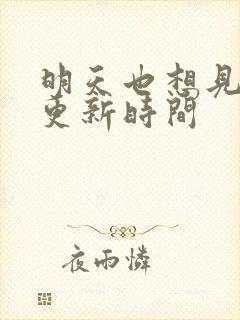 明天也想見
更新時間
夜雨憐